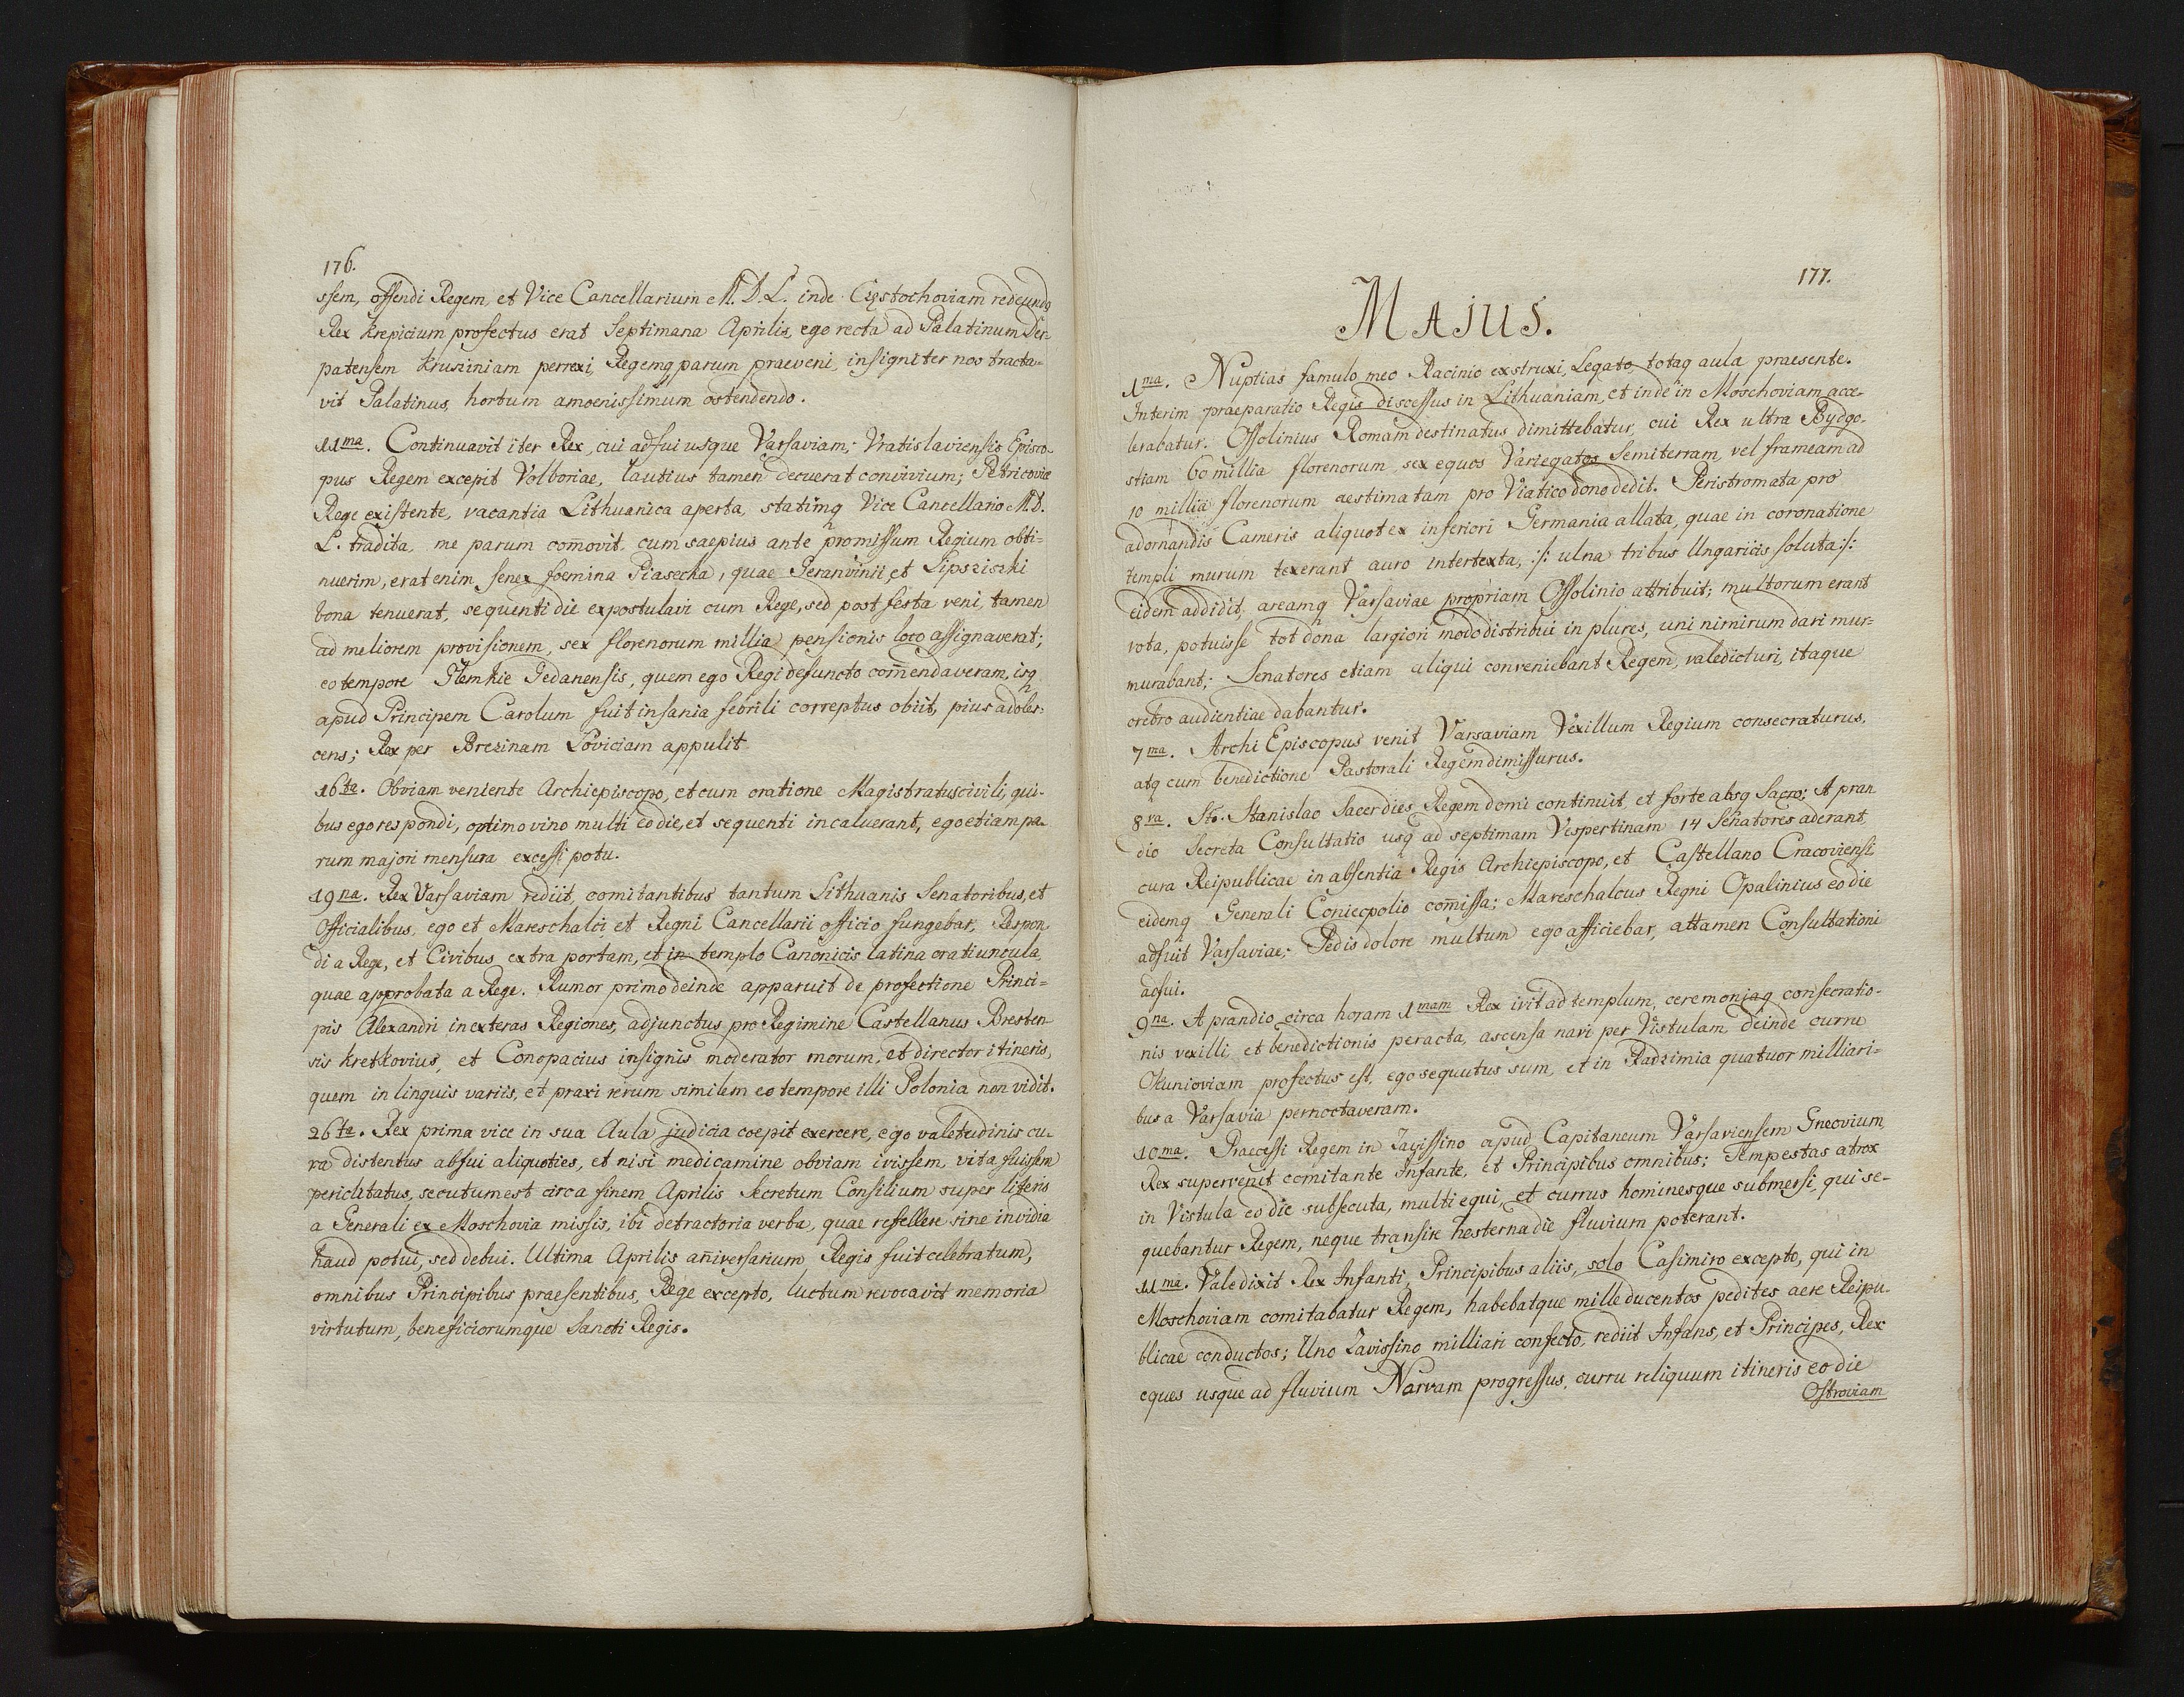 176.
ssem, offendi Regem, et Vice Cancellarium M. D. L. inde Częstochoviam redeundo
Rex krepicium profectus erat Septimana Aprilis, ego recta ad Palatinum Der-
patensem kruszinam perrexi, Regemq parum praeveni, insigniter nos tracta-
vit Palatinus, hortum amoenissimum ostendendo.
11ma. Continuavit iter Rex, cui adfui usque Varsaviam; Vratislaviensis Episco-
pus Regem excepit Volboriae, lautius tamen decuerat convivium; Petricoviae
Rege existente, vacantia Lithuanica aperta, statimq Vice Cancellario M. D.
L. tradita, me parum com̄ovit, cum saepius ante promissum Regium obti-
nuerim, erat enim senex foemina Piasecka, quae Geranvinii et Lipsziszki
bona tenuerat, sequenti die expostulavi cum Rege, sed post festa veni, tamen
ad meliorem provisionem, sex florenorum millia pensionis loco assignaverat;
eo tempore Ilemkie Gedanensis, quem ego Regi defuncto com̄endaveram, isq
apud Principem Carolum fuit insania febrili correptus obiit, pius adoles-
cens; Rex per Brezinam Loviciam appulit
16ta. Obviam veniente Archiepiscopo, et cum oratione Magistratus civili, qui-
bus ego respondi, optimo vino multi eo die, et sequenti incaluerant, ego etiam pa-
rum majori mensura excessi potu.
19na. Rex Varsaviam rediit, comitantibus tantum Lithuanis Senatoribus, et
Officialibus, ego et Mareschalci et Regni Cancellarii officio fungebar, Respon
di a Rege, et Civibus extra portam, et in templo Canonicis latina oratiuncula,
quae approbata a Rege. Rumor primo deinde apparuit de profectione Princi=
pis Alexandri in exteras Regiones, adjunctus pro Regimine Castellanus Bresten
sis kretkovius, et Conopacius insignis moderator morum, et director itineris,
quem in linguis variis, et praxi rerum similem eo tempore illi Polonia non vidit.
26ta. Rex prima vice in sua Aula judicia coepit exercere, ego valetudinis cu-
ra distentus abfui aliquoties, et nisi medicamine obviam ivissem, vita fuissem
periclitatus, secutum est circa finem Aprilis Secretum Consilium super literis
a Generali ex Moschovia missis, ibi detractoria verba, quae reffellere sine invidia
haud potui, sed debui. Ultima Aprilis an̄iversarium Regis fuit celebratum,
omnibus Principibus praesentibus, Rege excepto, luctum revocavit memoria
virtutum, beneficiorumque Sancti Regis.
177.
MAJUS.
1ma. Nuptias famulo meo Racinio exstruxi, Legato totaq aula praesente.
Interim praeparatio Regis discessus in Lithuaniam, et inde in Moschoviam acce-
lerabatur. Ossolinius Romam destinatus dimittebatur, cui Rex ultra Bydgo-
stiam 60 millia florenorum, sex equos Variegatos Semiterram, vel frameam ad
10 millia florenorum aestimatam pro Viatico dono dedit. Peristromata pro
adornandis Cameris aliquot ex inferiori Germania allata, quae in coronatione
templi murum texerant auro intertexta, :/: ulna tribus Ungaricis soluta :/:
eidem addidit, areamq Varsaviae propriam Ossolinio attribuit; multorum erant
vota, potuisse tot dona largiori modo distribui in plures, uni nimirum dari mur=
murabant; Senatores etiam aliqui conveniebant Regem, valedicturi, itaque
crebro audientiae dabantur.
7ma. Archi Episcopus venit Varsaviam Vexillum Regium consecraturus,
atq cum benedictione Pastorali Regem dimissurus.
8va. Sto. Stanislao Sacer dies Regem domi continuit et forte absq Sacro; A pran
dio Secreta Consultatio usq ad septimam Vespertinam 14 Senatores aderant
cura Reipublicae in absentia Regis Archiepiscopo, et Castellano Cracoviensi,
eidemq Generali Coniecpolio com̄issa; Mareschalcus Regni Opalinius eo die
adfuit Varsaviae; Pedis dolore multum ego afficiebar, attamen Consultationi
adfui.
9na. A prandio circa horam 1mam Rex ivit ad templum, ceremoniaq consecratio-
nis vexilli, et benedictionis peracta, ascensa navi per Vistulam deinde curru
Okunioviam profectus est, ego sequutus sum, et in Radzimia quatuor milliari-
bus a Varsavia pernoctaveram.
10ma. Praecessi Regem in Zavissino apud Capitaneum Varsaviensem Gneovium,
Rex supervenit comitante Infante, et Principibus omnibus; Tempestas atrox
in Vistula eo die subsecuta, multi equi, et currus hominesque submersi, qui se-
quebantur Regem, neque transire hesterna die fluvium poterant.
11ma. Valedixit Rex Infanti, Principibus aliis, solo Casimiro excepto, qui in
Moschoviam comitabatur Regem, habebatque mille ducentos pedites aere Reipu-
blicae conductos; Uno Zavissino milliari confecto, rediit Infans, et Principes, Rex
eques usque ad fluvium Narvam progressus, curru reliquum itineris eo die
Ostroviam